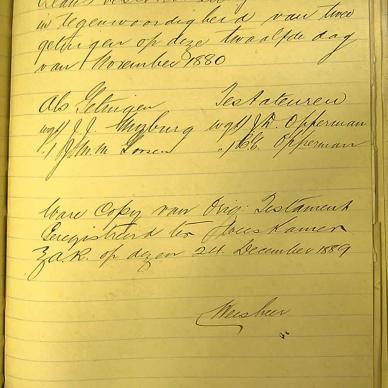 in tegenwoordigheid van twee
getuigen op deze twaalfde dag
van November 1880
Als Getuigen Testateuren
wg/ J.J. Myburg wg/ J.D. Opperman
" J.M.M. " C.C. Opperman
Ware Copy van Orig: Testament
Geregistreerd ter Weeskamer
Z.A.R. op dezen 24 December 1889
Weesheer